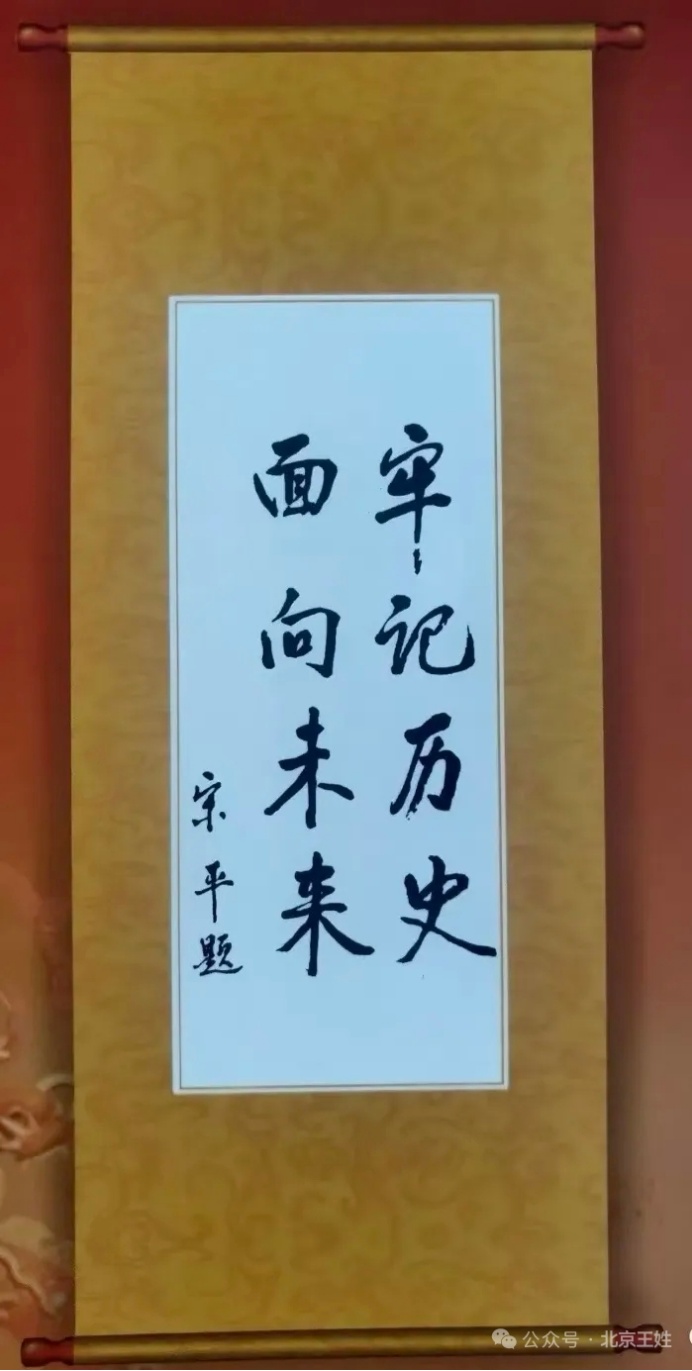 牢记历史
面向未来
宋平题
公众号·北京王姓